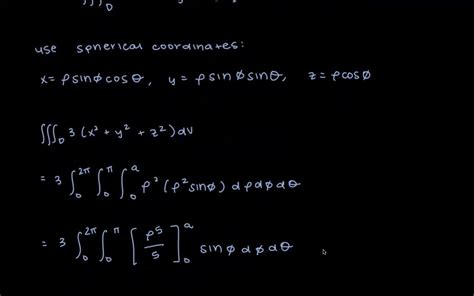 ∭_D
use spherical coordinates:
x = ρ sinφ cosθ, y = ρ sinφ sinθ, z = ρcosφ
∭_D 3 (x² + y² + z²) dV
= 3 ∫₀^{2π} ∫₀^{π} ∫₀^{a} ρ² (ρ² sinφ) dρ dφ dθ
= 3 ∫₀^{2π} ∫₀^{π} [ρ⁵/5]₀^{a} sinφ dφ dθ